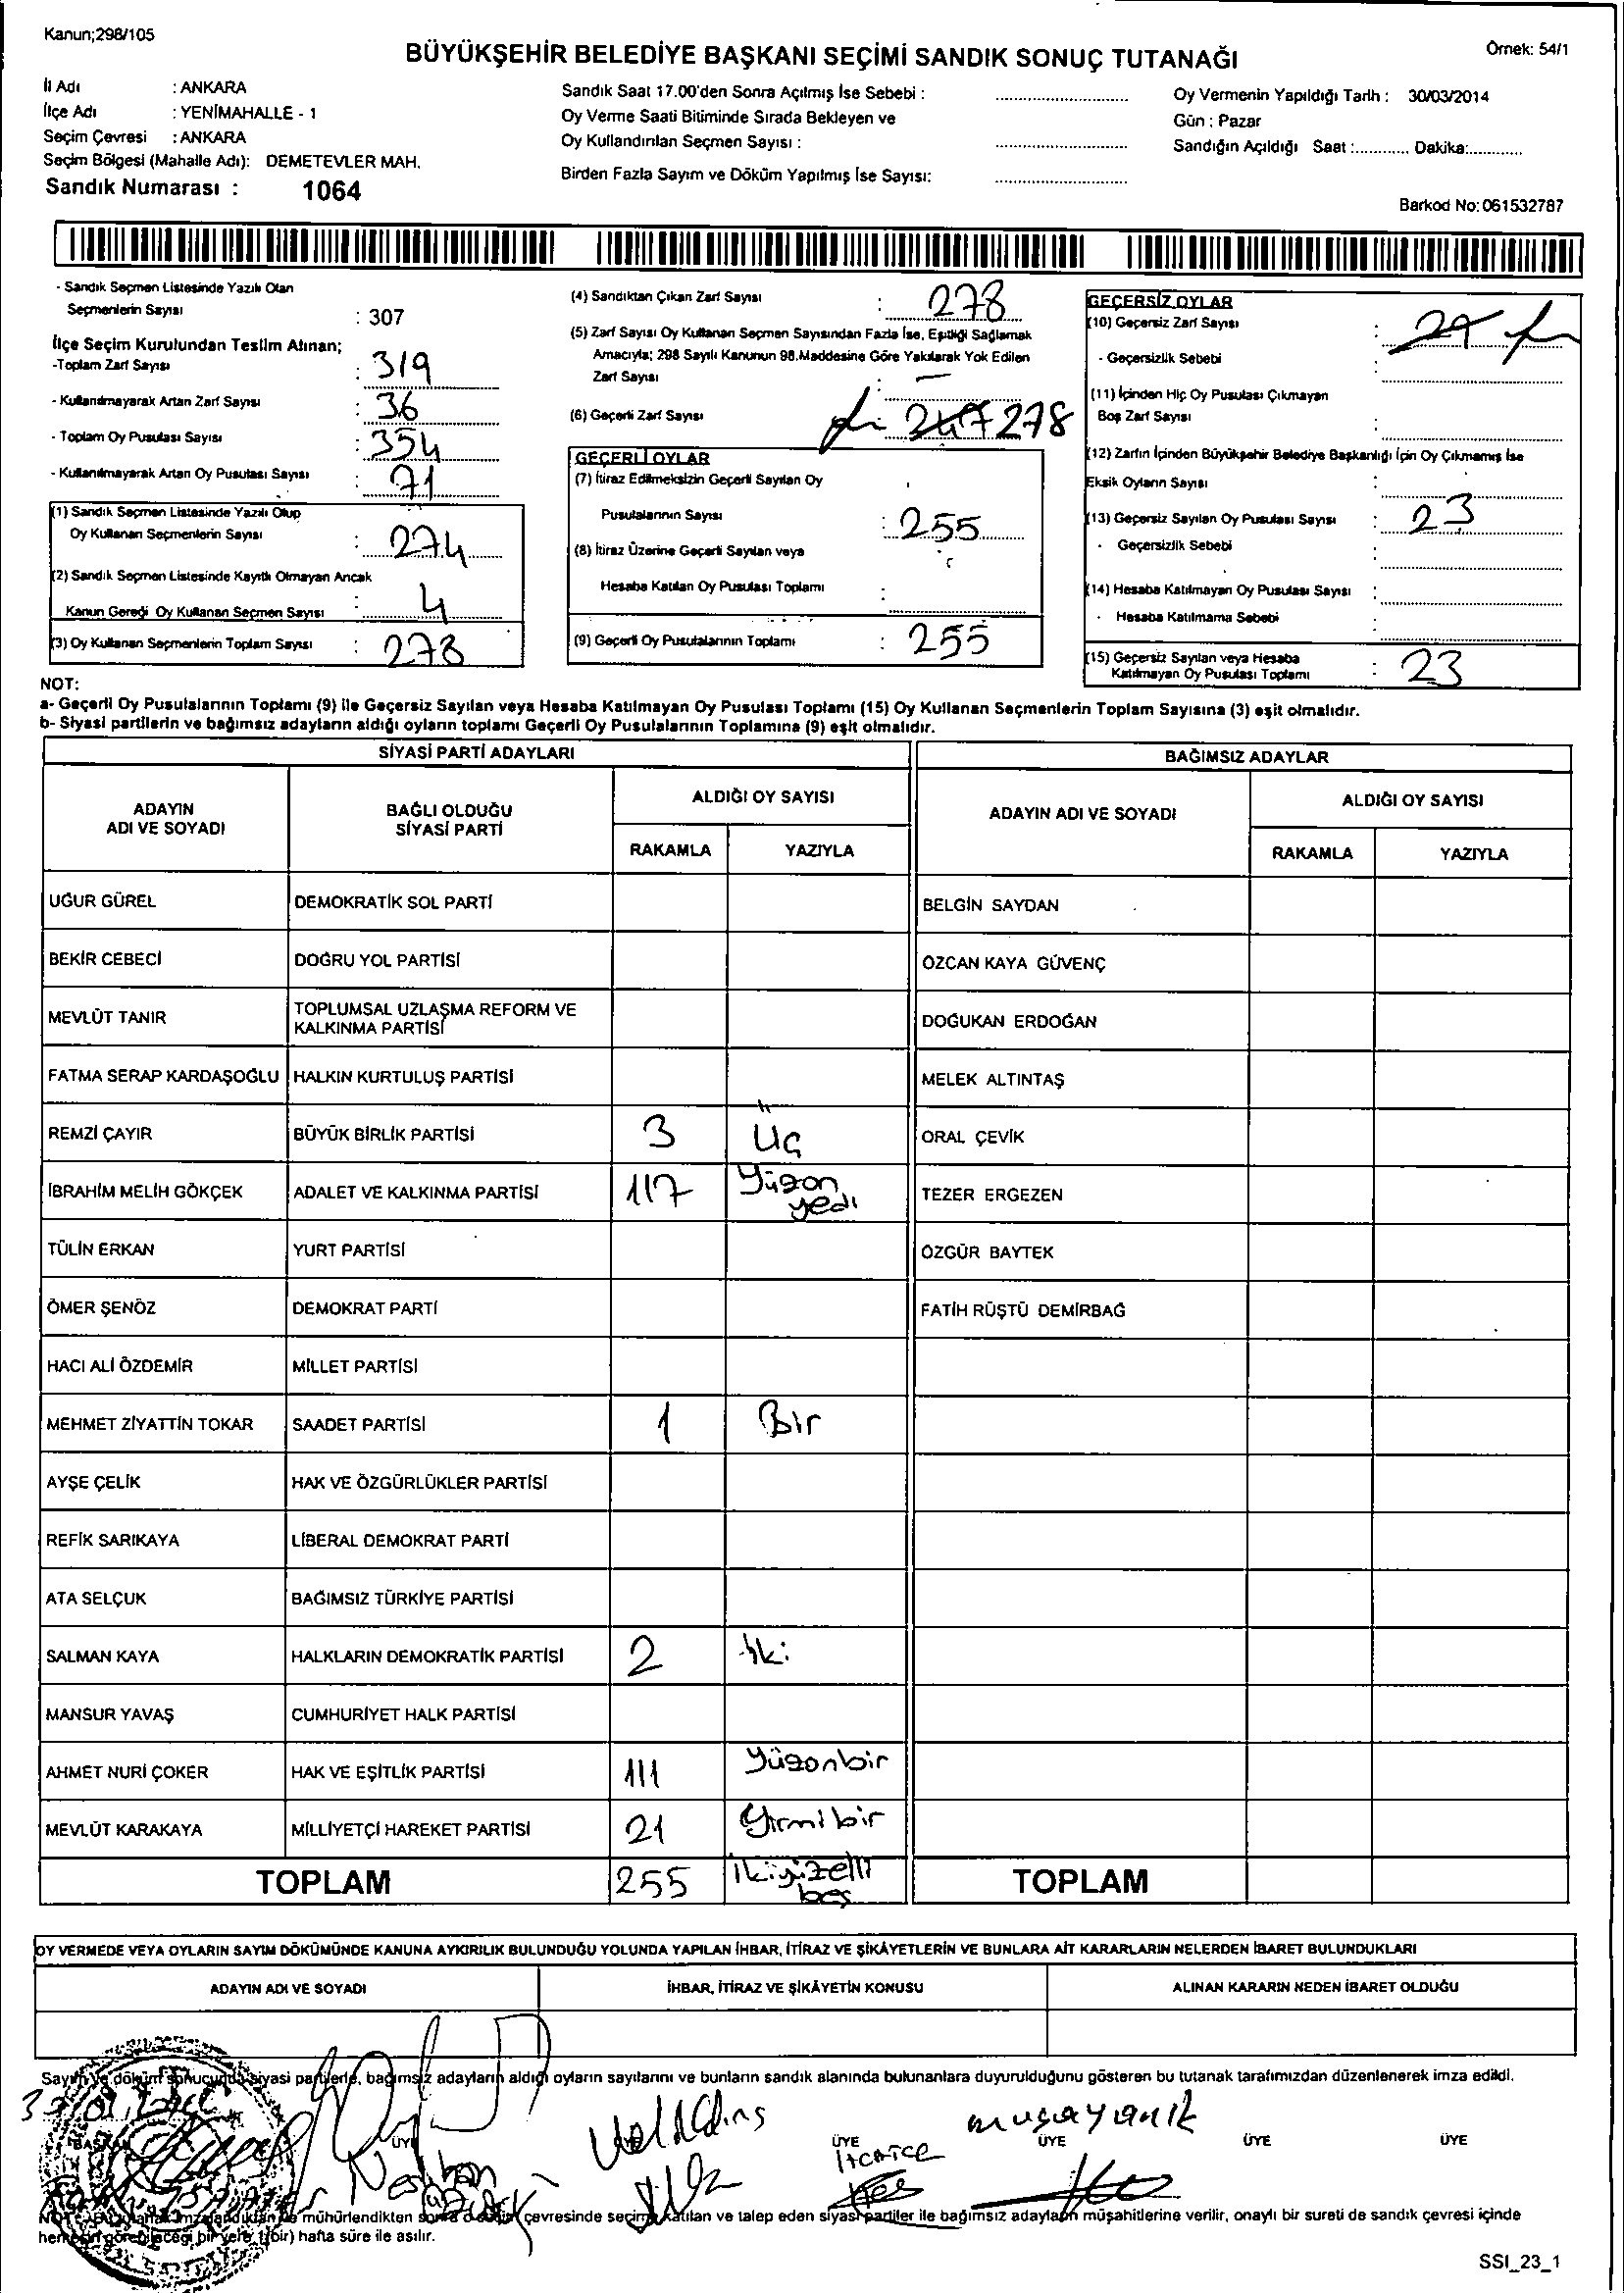 Kanun;298/105
BÜYÜKŞEHİR BELEDİYE BAŞKANI SEÇİMİ SANDIK SONUÇ TUTANAĞI
Örnek: 54/1
İl Adı : ANKARA
İlçe Adı : YENİMAHALLE - 1
Seçim Çevresi : ANKARA
Seçim Bölgesi (Mahalle Adı): DEMETEVLER MAH.
Sandık Numarası : 1064
Sandık Saat 17.00'den Sonra Açılmış İse Sebebi :
Oy Verme Saati Bitiminde Sırada Bekleyen ve
Oy Kullandırılan Seçmen Sayısı :
Birden Fazla Sayım ve Döküm Yapılmış İse Sayısı:
Oy Vermenin Yapıldığı Tarih : 30/03/2014
Gün : Pazar
Sandığın Açıldığı Saat :............ Dakika:............
Barkod No: 061532787
- Sandık Seçmen Listesinde Yazılı Olan
Seçmenlerin Sayısı : 307
İlçe Seçim Kurulundan Teslim Alınan;
-Toplam Zarf Sayısı : 319
- Kullanılmayarak Artan Zarf Sayısı : 36
- Toplam Oy Pusulası Sayısı : 354
- Kullanılmayarak Artan Oy Pusulası Sayısı : 71
(1) Sandık Seçmen Listesinde Yazılı Olup
Oy Kullanan Seçmenlerin Sayısı : 274
(2) Sandık Seçmen Listesinde Kayıtlı Olmayan Ancak
Kanun Gereği Oy Kullanan Seçmen Sayısı : 4
(3) Oy Kullanan Seçmenlerin Toplam Sayısı : 278
(4) Sandıktan Çıkan Zarf Sayısı : 278
(5) Zarf Sayısı Oy Kullanan Seçmen Sayısından Fazla İse, Eşitliği Sağlamak
Amacıyla; 298 Sayılı Kanunun 98.Maddesine Göre Yakılarak Yok Edilen
Zarf Sayısı : —
(6) Geçerli Zarf Sayısı : 247 278
GEÇERLİ OYLAR
(7) İtiraz Edilmeksizin Geçerli Sayılan Oy
Pusulalarının Sayısı : 255
(8) İtiraz Üzerine Geçerli Sayılan veya
Hesaba Katılan Oy Pusulası Toplamı :
(9) Geçerli Oy Pusulalarının Toplamı : 255
GEÇERSİZ OYLAR
(10) Geçersiz Zarf Sayısı : 29
- Geçersizlik Sebebi :
(11) İçinden Hiç Oy Pusulası Çıkmayan
Boş Zarf Sayısı :
(12) Zarfın İçinden Büyükşehir Belediye Başkanlığı İçin Oy Çıkmamış İse
Eksik Oyların Sayısı :
(13) Geçersiz Sayılan Oy Pusulası Sayısı : 23
- Geçersizlik Sebebi :
(14) Hesaba Katılmayan Oy Pusulası Sayısı :
- Hesaba Katılmama Sebebi :
(15) Geçersiz Sayılan veya Hesaba
Katılmayan Oy Pusulası Toplamı : 23
NOT:
a- Geçerli Oy Pusulalarının Toplamı (9) ile Geçersiz Sayılan veya Hesaba Katılmayan Oy Pusulası Toplamı (15) Oy Kullanan Seçmenlerin Toplam Sayısına (3) eşit olmalıdır.
b- Siyasi partilerin ve bağımsız adayların aldığı oyların toplamı Geçerli Oy Pusulalarının Toplamına (9) eşit olmalıdır.
SİYASİ PARTİ ADAYLARI
ADAYIN ADI VE SOYADI
BAĞLI OLDUĞU SİYASİ PARTİ
ALDIĞI OY SAYISI
RAKAMLA YAZIYLA
UĞUR GÜREL DEMOKRATİK SOL PARTİ
BEKİR CEBECİ DOĞRU YOL PARTİSİ
MEVLÜT TANIR TOPLUMSAL UZLAŞMA REFORM VE KALKINMA PARTİSİ
FATMA SERAP KARDAŞOĞLU HALKIN KURTULUŞ PARTİSİ
REMZİ ÇAYIR BÜYÜK BİRLİK PARTİSİ 3 Üç
İBRAHİM MELİH GÖKÇEK ADALET VE KALKINMA PARTİSİ 117 Yüzon yedi
TÜLİN ERKAN YURT PARTİSİ
ÖMER ŞENÖZ DEMOKRAT PARTİ
HACI ALİ ÖZDEMİR MİLLET PARTİSİ
MEHMET ZİYATTİN TOKAR SAADET PARTİSİ 1 Bir
AYŞE ÇELİK HAK VE ÖZGÜRLÜKLER PARTİSİ
REFİK SARIKAYA LİBERAL DEMOKRAT PARTİ
ATA SELÇUK BAĞIMSIZ TÜRKİYE PARTİSİ
SALMAN KAYA HALKLARIN DEMOKRATİK PARTİSİ 2 iki
MANSUR YAVAŞ CUMHURİYET HALK PARTİSİ
AHMET NURİ ÇOKER HAK VE EŞİTLİK PARTİSİ 111 Yüzonbir
MEVLÜT KARAKAYA MİLLİYETÇİ HAREKET PARTİSİ 21 Yirmibir
TOPLAM 255 ikiyüzelli beş
BAĞIMSIZ ADAYLAR
ADAYIN ADI VE SOYADI
ALDIĞI OY SAYISI
RAKAMLA YAZIYLA
BELGİN SAYDAN
ÖZCAN KAYA GÜVENÇ
DOĞUKAN ERDOĞAN
MELEK ALTINTAŞ
ORAL ÇEVİK
TEZER ERGEZEN
ÖZGÜR BAYTEK
FATİH RÜŞTÜ DEMİRBAĞ
TOPLAM
OY VERMEDE VEYA OYLARIN SAYIM DÖKÜMÜNDE KANUNA AYKIRILIK BULUNDUĞU YOLUNDA YAPILAN İHBAR, İTİRAZ VE ŞİKÂYETLERİN VE BUNLARA AİT KARARLARIN NELERDEN İBARET BULUNDUKLARI
ADAYIN ADI VE SOYADI
İHBAR, İTİRAZ VE ŞİKÂYETİN KONUSU
ALINAN KARARIN NEDEN İBARET OLDUĞU
Sayım ve döküm sonucunda siyasi partilerle, bağımsız adayların aldığı oyların sayılarını ve bunların sandık alanında bulunanlara duyurulduğunu gösteren bu tutanak tarafımızdan düzenlenerek imza edildi.
BAŞKAN ÜYE ÜYE ÜYE ÜYE ÜYE
musa yanık
Hatice
Neslihan
NOT: Bu tutanak imzalandıktan ve mühürlendikten sonra o seçim çevresinde seçime katılan ve talep eden siyasi partiler ile bağımsız adayların müşahitlerine verilir, onaylı bir sureti de sandık çevresi içinde
herkesin görebileceği bir yere 1(bir) hafta süre ile asılır.
SSI_23_1